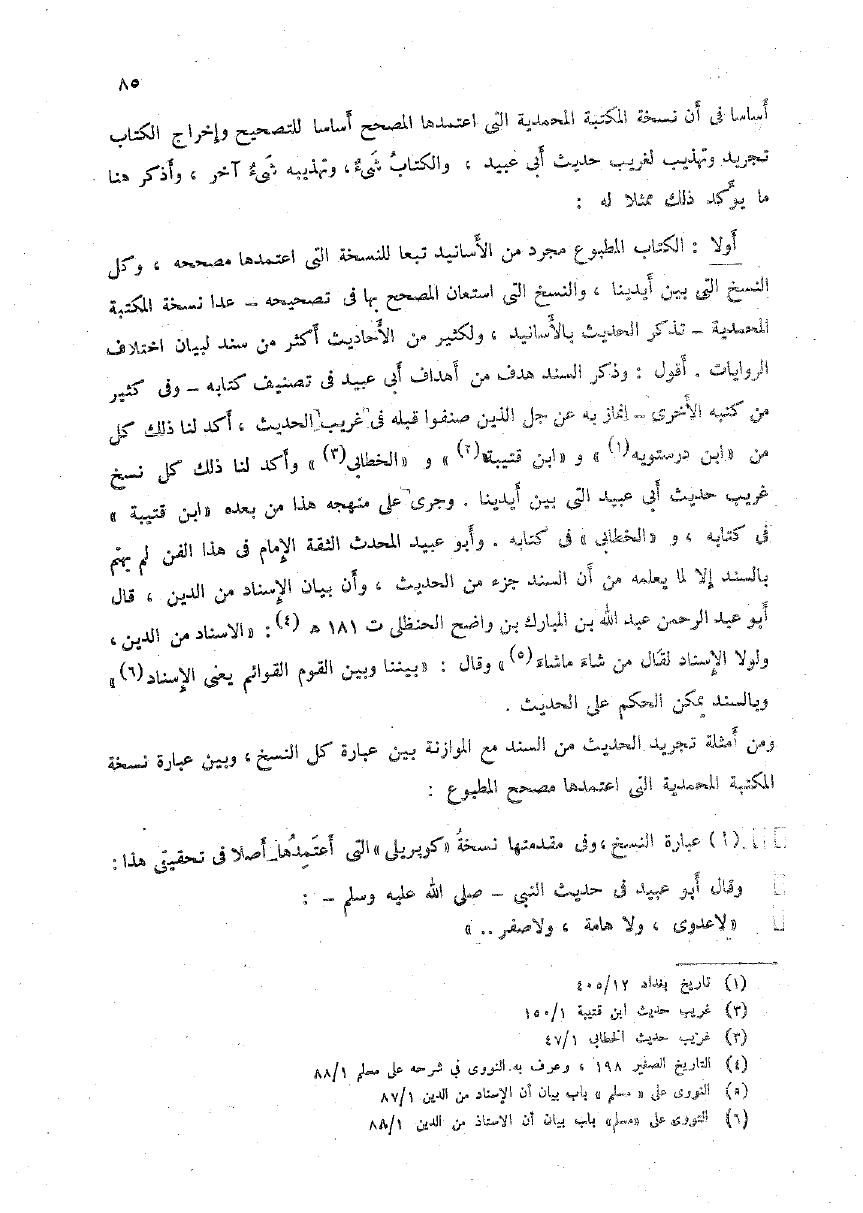 ٨٥
أساسا فى أن نسخة المكتبة المحمدية التى اعتمدها المصحح أساسا للتصحيح وإخراج الكتاب
تجريد وتهذيب لغريب حديث أبى عبيد ، والكتابُ شَىءٌ ، وتهذيبه شَىءٌ آخر ، وأذكر هنا
ما يؤكد ذلك ممثلا له :
أولا : الكتاب المطبوع مجرد من الأسانيد تبعا للنسخة التى اعتمدها مصححه ، وكل
النسخ التى بين أيدينا ، والنسخ التى استعان المصحح بها فى تصحيحه – عدا نسخة المكتبة
المحمدية – تذكر الحديث بالأسانيد ، ولكثير من الأحاديث أكثر من سند لبيان اختلاف
الروايات . أقول : وذكر السند هدف من أهداف أبى عبيد فى تصنيف كتابه – وفى كثير
من كتبه الأخرى – إنماز به عن جل الذين صنفوا قبله فى غريب الحديث ، أكد لنا ذلك كل
من «ابن درستويه(١)» و «ابن قتيبة(٢)» و «الخطابى(٣)» وأكد لنا ذلك كل نسخ
غريب حديث أبى عبيد التى بين أيدينا . وجرى على منهجه هذا من بعده «ابن قتيبة »
فى كتابه ، و «الخطابى» فى كتابه . وأبو عبيد المحدث الثقة الإمام فى هذا الفن لم يهتم
بالسند إلا لما يعلمه من أن السند جزء من الحديث ، وأن بيان الإسناد من الدين ، قال
أبو عبد الرحمن عبد الله بن المبارك بن واضح الحنظلى ت ١٨١ ه (٤) : «الاسناد من الدين ،
ولولا الإسناد لقال من شاء ماشاء(٥)» وقال : «بيننا وبين القوم القوائم يعنى الإسناد(٦)»
وبالسند يمكن الحكم على الحديث .
ومن أمثلة تجريد الحديث من السند مع الموازنة بين عبارة كل النسخ ، وبين عبارة نسخة
المكتبة المحمدية التى اعتمدها مصحح المطبوع :
(أ) عبارة النسخ ، وفى مقدمتها نسخةُ «كوبريلى» التى أعتَمِدُها أصلا فى تحقيقى هذا :
وقال أبو عبيد فى حديث النبى – صلى الله عليه وسلم – :
«لاعدوى ، ولا هامة ، ولاصفر .. »
(١) تاريخ بغداد ٤٠٥/١٢
(٣) غريب حديث ابن قتيبة ١٥٠/١
(٣) غريب حديث الخطابى ٤٧/١
(٤) التاريخ الصغير ١٩٨ ، وعرف به النووى فى شرحه على مسلم ٨٨/١
(٥) النووى على « مسلم » باب بيان أن الإسناد من الدين ٨٧/١
(٦) النووى على «مسلم» باب بيان أن الاستاذ من الدين ٨٨/١